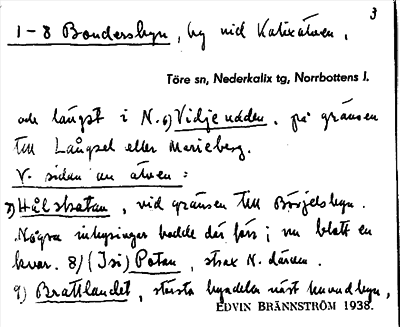 3
1-8 Bondersbyn, by vid Kalixälven,
Töre sn, Nederkalix tg, Norrbottens l.
och längst i N. 6) Vidjeudden, på gränsen
till Långsel eller Marieberg.
V. sidan av älven:
7) Hålstratan, vid gränsen till Börjelsbyn.
Några inhysingar bodde där förr; nu blott en
kvar. 8) (Isi) Potan, strax N. därom.
9) Brattlandet, största bydelen näst huvudbyn,
EDVIN BRÄNNSTRÖM 1938.